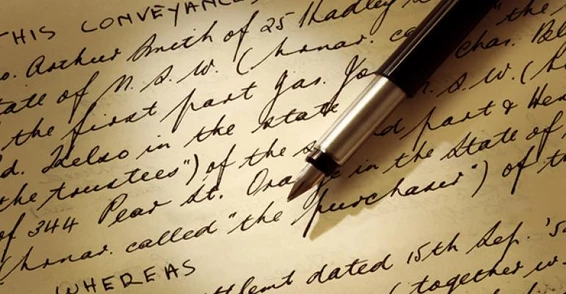 THIS CONVEYANCE
o. Arthur Smith of 25 Hadley
tate of N.S.W. (hrnar. ca "the
the first part Gas. Jo chas. Bl
d. Kelso in the state N.S.W. (h
the trustees") of the s d part & Hen
of 344 Pear St. Ora e in the State of
(hrnar. called "the purchaser") of t
WHEREAS
ttlemt dated 15th Sep. '5
( together w.